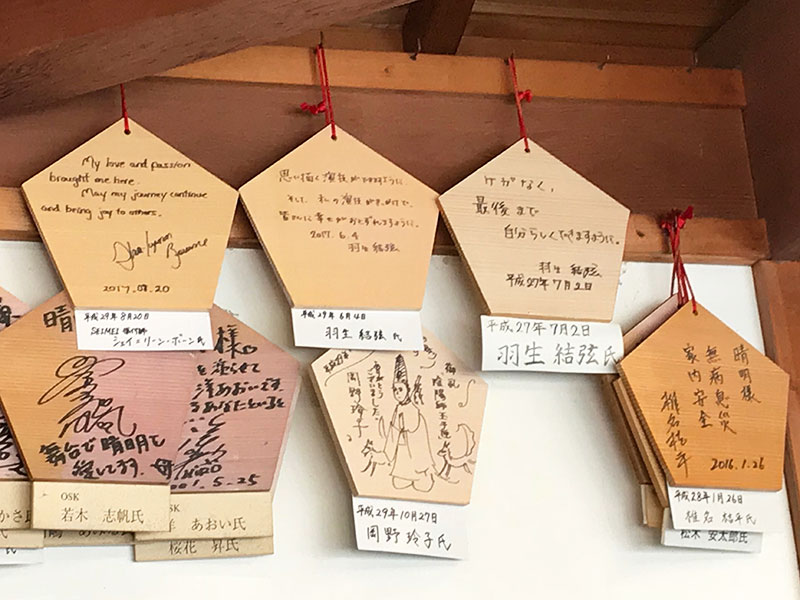 My love and passion
brought me here.
May my journey continue
and bring joy to others.
2017.08.20
平成29年8月20日
SEIMEI 振付師
シェイ=リーン・ボーン氏
思い描く演技ができますように
そして、私の演技がきっかけで、
皆さんに幸せがおとずれますように。
2017. 6. 4
羽生 結弦
平成29年 6月4日
羽生 結弦 氏
ケガなく、
最後まで
自分らしくできますように。
羽生 結弦
平成27年7月2日
平成27年7月2日
羽生 結弦氏
晴
舞台で晴明を
愛してます。
OSK
若木 志帆氏
様
5-25
OSK
あおい氏
桜花 昇氏
御礼
陰陽師玉手匣
ございました
岡野玲子
平成29年10月27日
岡野 玲子氏
晴明様
無病息災
家内安全
椎名桔平
2016.1.26
平成28年1月26日
椎名 桔平氏
松木 安太郎氏